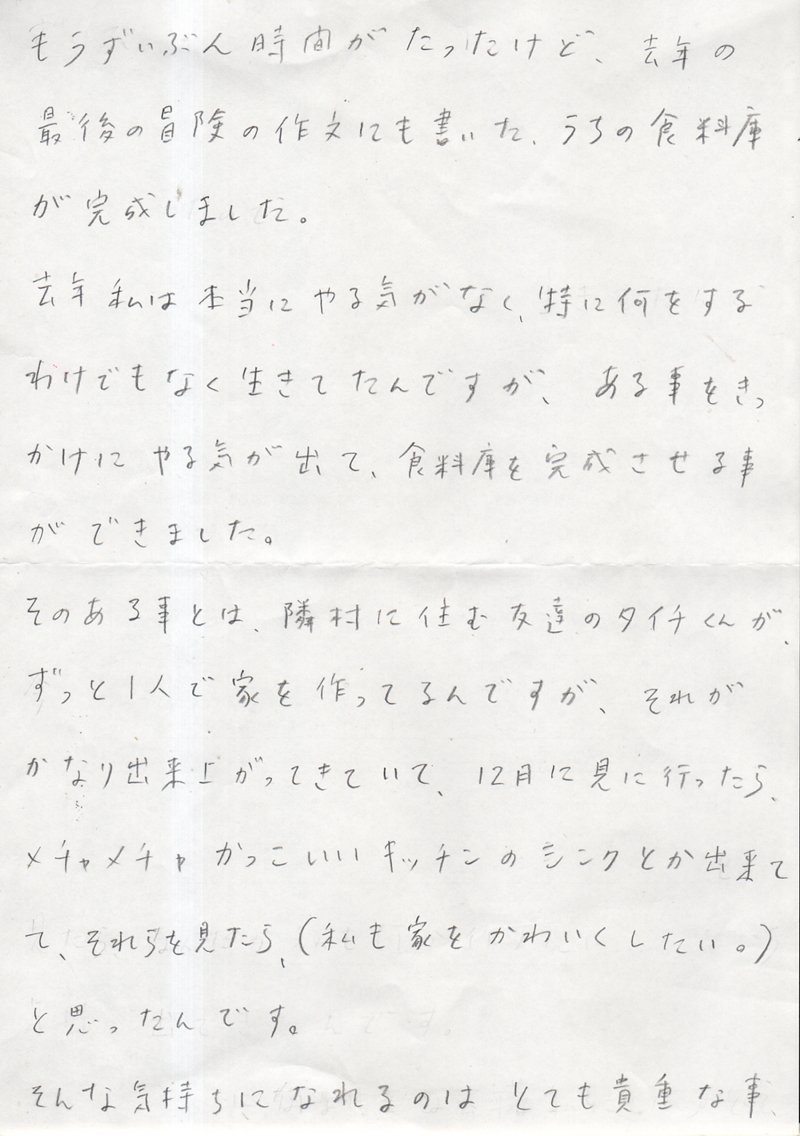 もうずいぶん時間がたったけど、去年の
最後の冒険の作文にも書いた、うちの食料庫
が完成しました。
去年私は本当にやる気がなく、特に何をする
わけでもなく生きてたんですが、ある事をきっ
かけにやる気が出て、食料庫を完成させる事
ができました。
そのある事とは、隣村に住む友達のタイチくんが、
ずっと1人で家を作ってるんですが、それが
かなり出来上がってきていて、12月に見に行ったら、
メチャメチャかっこいいキッチンのシンクとか出来て
て、それらを見たら、(私も家をかわいくしたい。)
と思ったんです。
そんな気持ちになれるのはとても貴重な事、